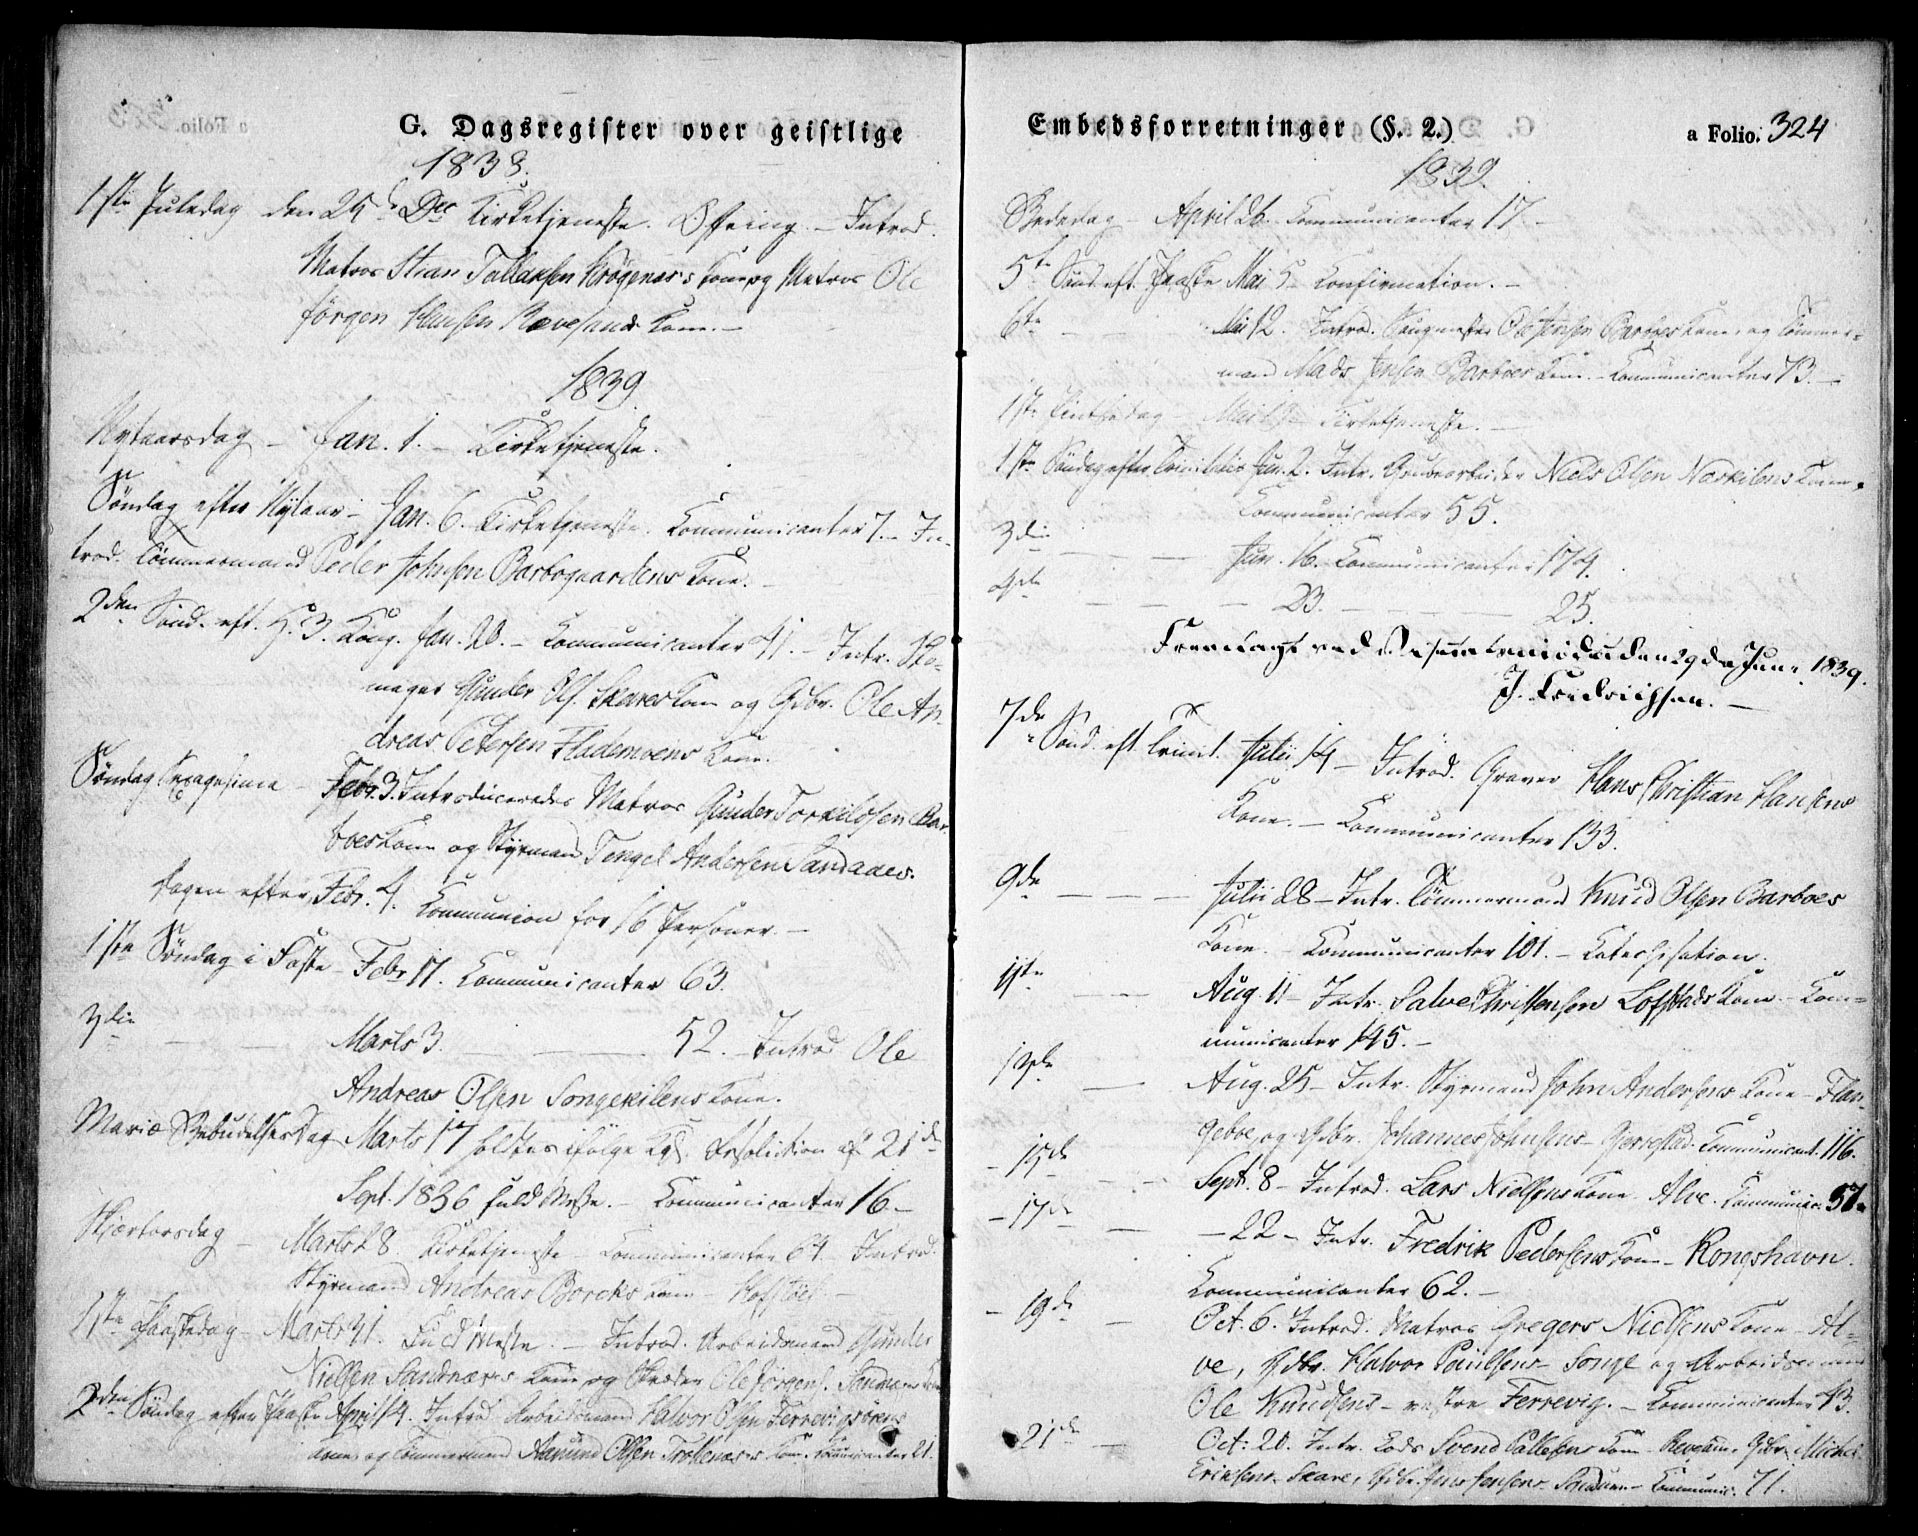 G. Dagsregister over geistlige
1838.
1ste Juledag den 25de Dec Kirketjeneste. Offring. – Introd.
Matros Stian Tallaksen Krøgenes's Kone og Matros Ole
Jørgen Hansen Revesands Kone. –
1839
Nytaarsdag – Jan. 1. – Kirketjeneste.
Søndag efter Nytaar – Jan. 6. Kirketjeneste. Communicanter 7. – In-
trod. Tømmermand Peder Johnsen Barbogaardens Kone. –
2den Sønd. eft. H. 3. Kong. Jan. 20. – Communicanter 41. – Intr.
Gunder Ols. Skares Kone og Gdbr. Ole An-
dreas Petersen Flademoens Kone.
Søndag Sexagesima – Febr. 3. Introduceredes Matros Gunder Torkilsen Bar-
boes Kone og Styrmand Tengel Andersen Sandaaes.
Dagen efter Febr. 4. Communion for 16 Personer. –
1ste Søndag i Faste – Febr 17. Communicanter 63.
3die – – Marts 3. – – 52. – Introd Ole
Andreas Olsen Songekilens Kone.
Mariæ Bebudelses Dag Marts 17 holdtes ifølge Kgl. Resolution af 21de
Sept. 1836 fuld Messe. – Communicanter 16. –
Skjærtorsdag – Marts 28. Kirketjeneste – Communicanter 64. – Introd.
Styrmand Andreas Borcks Kone –
1ste Paaskedag – Marts 31. Fuld Messe. – Introd. Arbeidsmand Gunder
Nielsen Sandnæs's Kone og Ole Jørgens.
2den Søndag efter Paaske April 14. Introd Arbeidsmand Halvor Olsen Ferrevigsørens
Kone og Tømmermand Aamund Olsen Kone. Communicanter 21.
Embedsforretninger (§. 2.) a Folio. 324
1839.
Bededag April 26. Communicanter 17 –
5te Sønd. eft. Paaske Mai 5 – Confirmation. –
6te – – Mai 12. Introd. Ole Jensen Barboes Kone, og Tømmer-
mand Mads Jensen Barboes Kone. – Communicanter 73. –
1ste Pintsedag – Mai 19 – Kirketjeneste. –
1ste Søndag efter Trinitatis Jun. 2. Intr. Grubearbeider Niels Olsen Neskilens Kone.
Communicanter 55.
3die – – Jun. 16. Communicanter 174.
4de – – – 23. – – – 25.
Fremlagt ved Visitatsen den 29de Juni 1839.
J. Fredrichsen. –
7de Sønd. eft. Trinit. Julii 14 – Introd. Graver Hans Christian Hansens
Kone. – Communicanter 133.
9de – – – Julii 28 – Intr. Tømmermand Knud Olsen Barboes
Kone. – Communicanter 101. – Catechisation.
11te – – Aug. 11 – Intr. Salve Christensen Lofstads Kone – Com-
municanter 145. –
13de – Aug. 25 – Intr. Styrmand John Andersens Kone – Flan-
geboe, og Gdbr. Johannes Johnsens – Gjerrestad. Communicant. 116.
– 15de – Sept. 8 – Introd. Lars Nielsens Kone Alve. Communic. 57.
– 17de – – 22 – Intr. Fredrik Pedersens Kone – Kongshavn.
Communicanter 62. –
– 19de – Oct. 6. Introd. Matros Gregers Nielsens Kone – Al-
ve, Gdbr. Halvor Paulsens – Songe og Arbeidsmand
Ole Knudsens – vestre Ferrevig. – Communicanter 43.
21de – Oct. 20. Intr. Lods Svend Pallesens Kone – Gdbr.
Eriksens – Skare, Gdbr. Jens Jensens – Communic. 71.